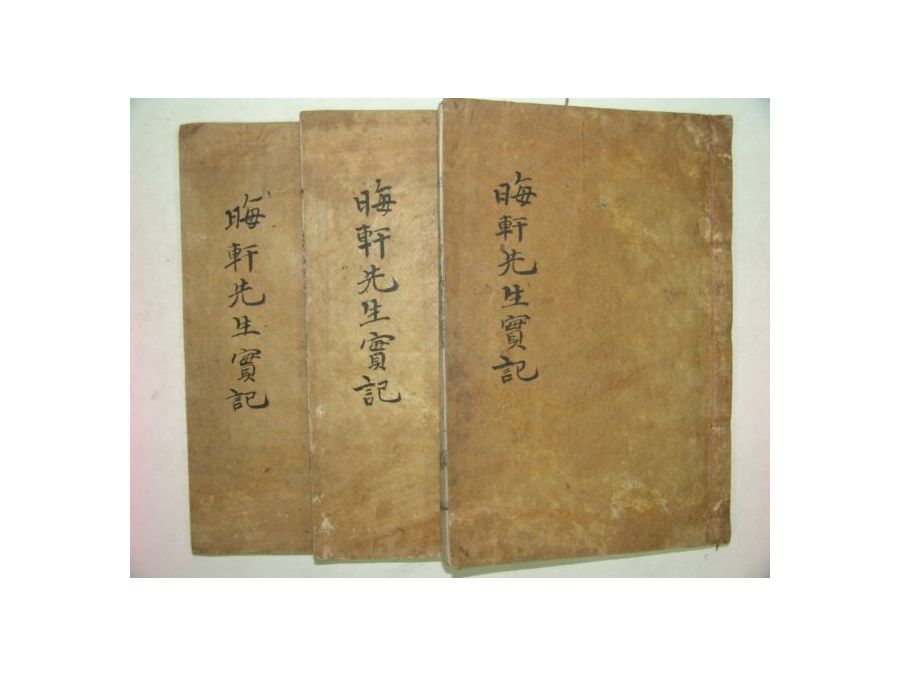 晦軒先生實記
晦軒先生實記
晦軒先生實記